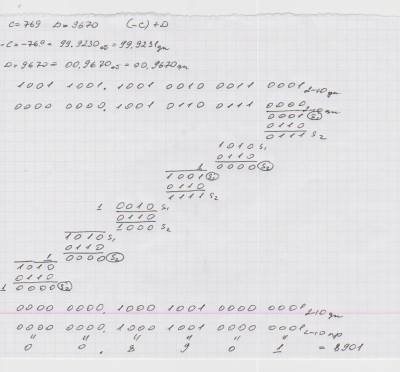 C=769 D=9670 (-C)+D
-C=-769= 99.9230об=99.9231дп
D=9670= 00.9670об=00.9670дп
1001 1001. 1001 0010 0011 0001 2-10 дп
0000 0000. 1001 0110 0111 0000 2-10 дп
0001 S1
0110
0111 S2
1010 S1
0110
0000 S2
1
1001 S1
0110
1111 S2
1 0010 S1
0110
1000 S2
1010 S1
0110
0000 S2
1
1010
0110
1 0000 S2
0000 0000. 1000 1001 0000 0001 2-10 дп
0000 0000. 1000 1001 0000 0001 2-10 пр
" " " " " "
0 0 . 8 9 0 1 = 8901